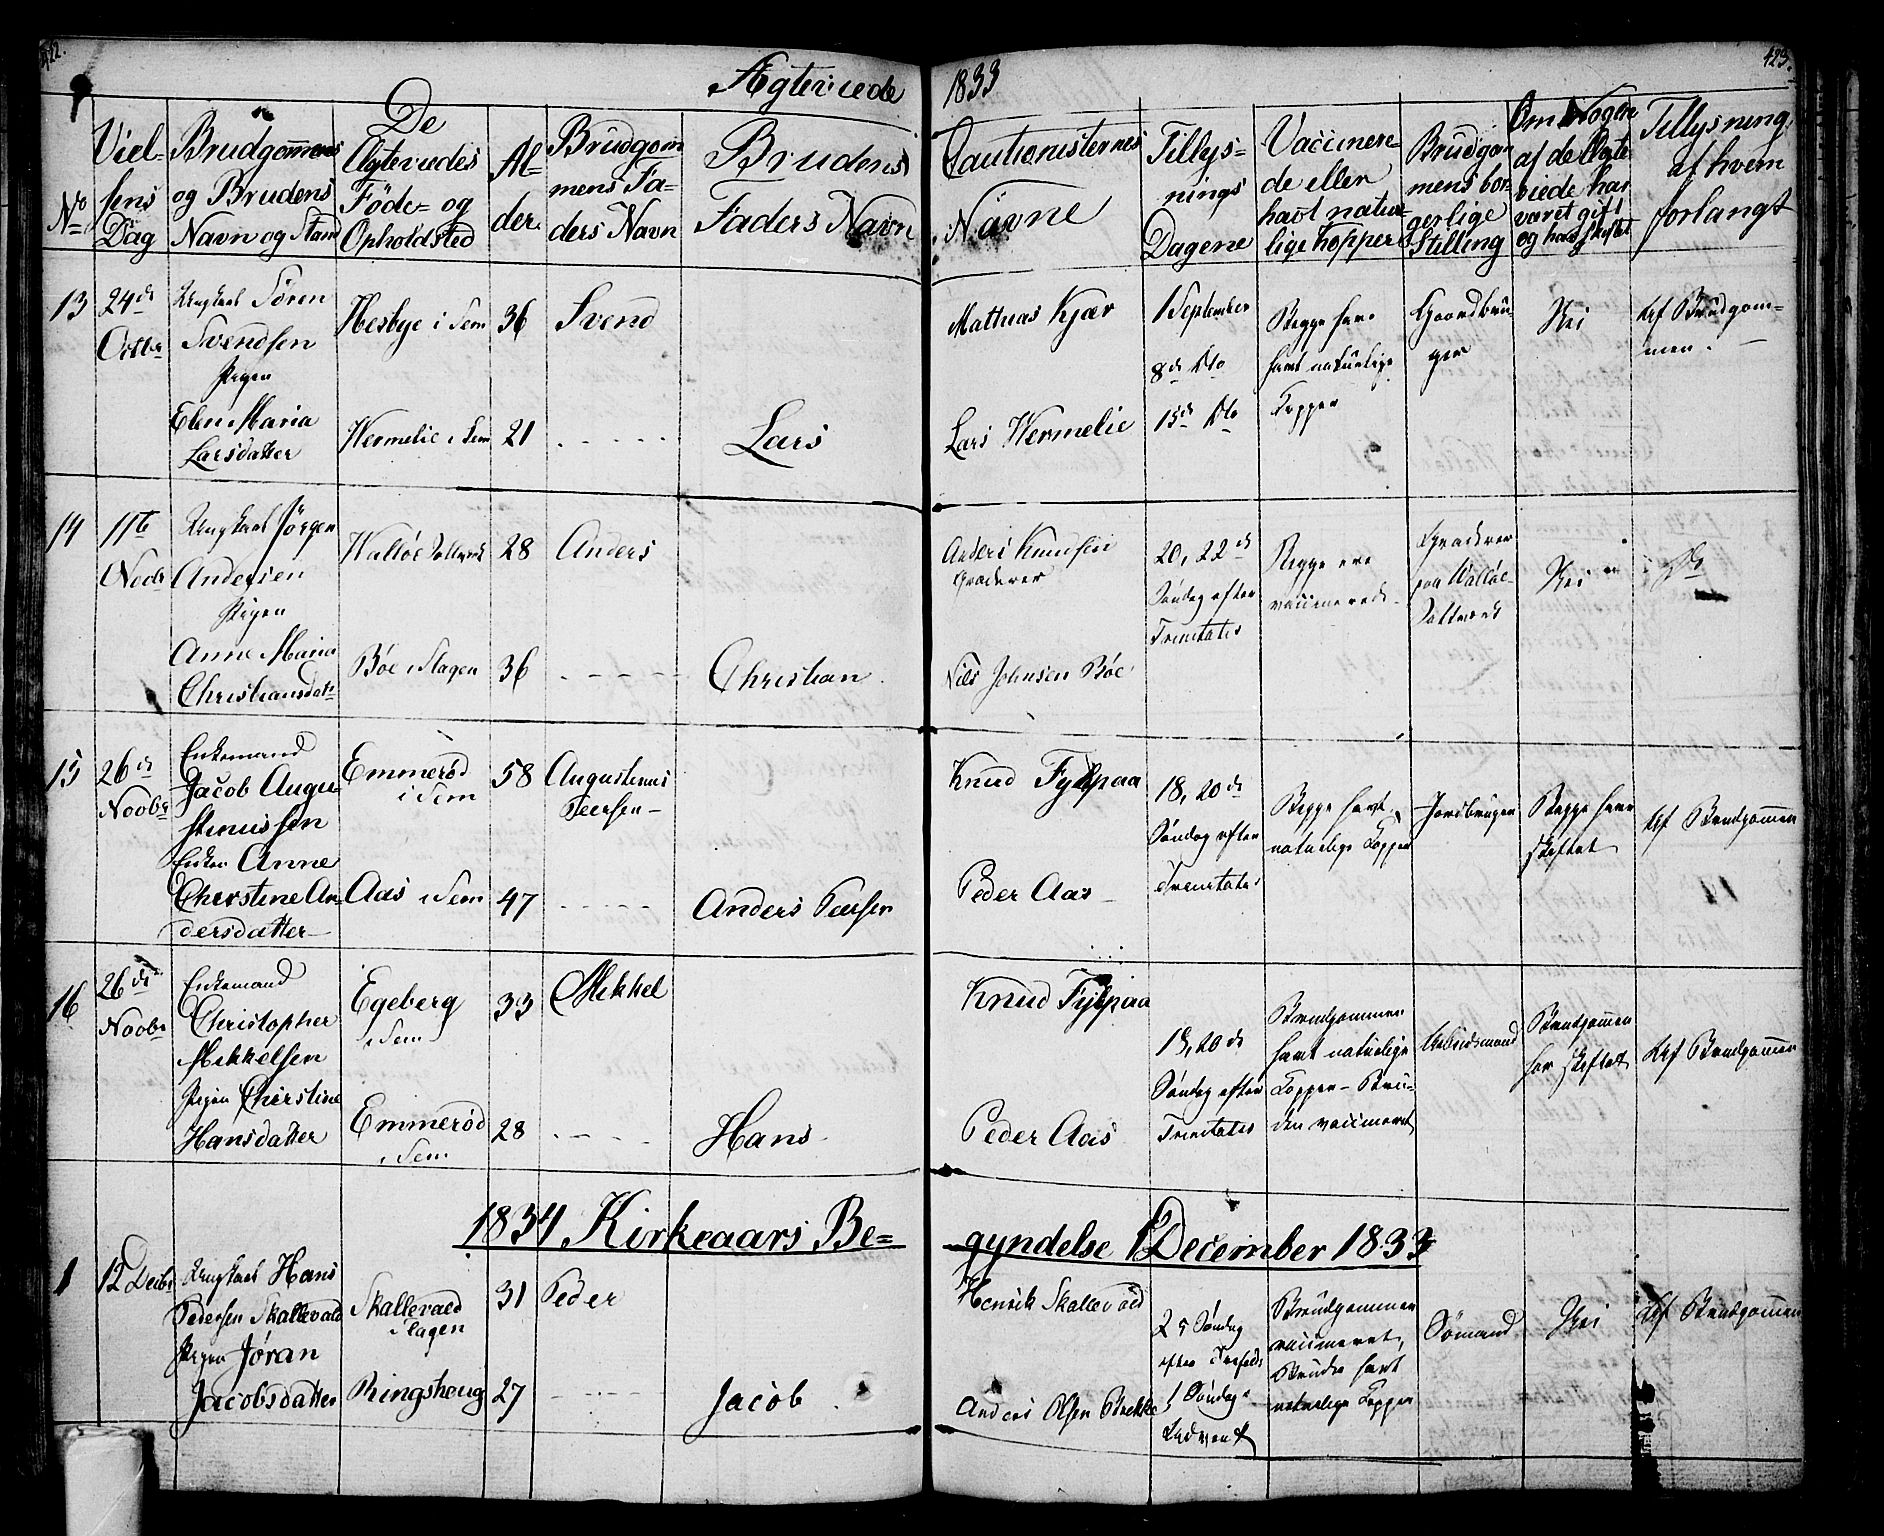 422.
423.
Ægteviede 1833
No
Viel-
sens
Dag
Brudgommens
og Brudens
Navn og Stand
De
Ægteviedes
Føde- og
Opholdsted
Al-
der.
Brudgom
mens Fa-
ders Navn
Brudens
Faders Navn
Cautionisternes
Navne
Tillys-
nings
Dagene
Vaccinere-
de eller
havt natur-
lige Kopper
Brudgom
mens bor-
gerlige
Stilling
Om Nogen
af de Ægte
viede har
været gift
og har skiftet
Tillysning
af hvem
forlangt
13
24de
Octbr
Ungkarl Søren
Svendsen
Pigen
Elen Maria
Larsdatter
Hesbye i Sem
Hermelie i Sem
36
21
Svend
Lars
Mathias Kjær
Lars Hermelie
1 September
8de Dto
15de Dto
Begge have
havt naturlige
Kopper
Gaardbru-
ger
Nei
Af Brudgom-
men.
14
11te
Novbr
Ungkarl Jørgen
Andersen
Pigen
Anne Maria
Christiansdatr
Walløe Saltværk
Bøe i Slagen
28
36
Anders
Christian
Anders Knudsen
Graderer
Nils Johnsen Bøe
20, 22de
Søndag efter
Trinitatis
Begge ere
vaccinerede
Graderer
paa Walløe
Saltværk
Nei
Do
15
26de
Novbr
Enkemand
Jacob Augu-
stinussen
Enken Anne
Cherstine An-
dersdatter
Emmerød
i Sem
Aas i Sem
58
47
Augustinus
Peersen
Anders Peersen
Knud Fylpaa
Peder Aas
18, 20de
Søndag efter
Trinitatis
Begge havt
naturlige Kopper
Jordbruger
Begge have
skiftet
Af Brudgommen
16
26de
Novbr
Enkemand
Christopher
Mikkelsen
Pigen Cherstine
Hansdatter
Egeberg
i Sem
Emmerød
i Sem
33
28
Mikkel
Hans
Knud Fylpaa
Peder Aas
19, 20de
Søndag efter
Trinitatis
Brudgommen
havt naturlige
Kopper - Bru-
den vaccineret
Arbeidsmand
Brudgommen
har skiftet
Af Brudgommen
1834 Kirkeaars Be-
gyndelse 1 December 1833
1
12 Decbr
Ungkarl Hans
Pedersen Skallevald
Pigen Jøran
Jacobsdatter
Skallevald
Slagen
Ringshoug
31
27
Peder
Jacob
Henrik Skallevold
Anders Olsen Brekke
25 Søndag
efter
1 Søndag
Advent
Brudgommen
vaccineret,
Bruden havt
naturlige Kopper
Sømand
Nei
Af Brudgommen